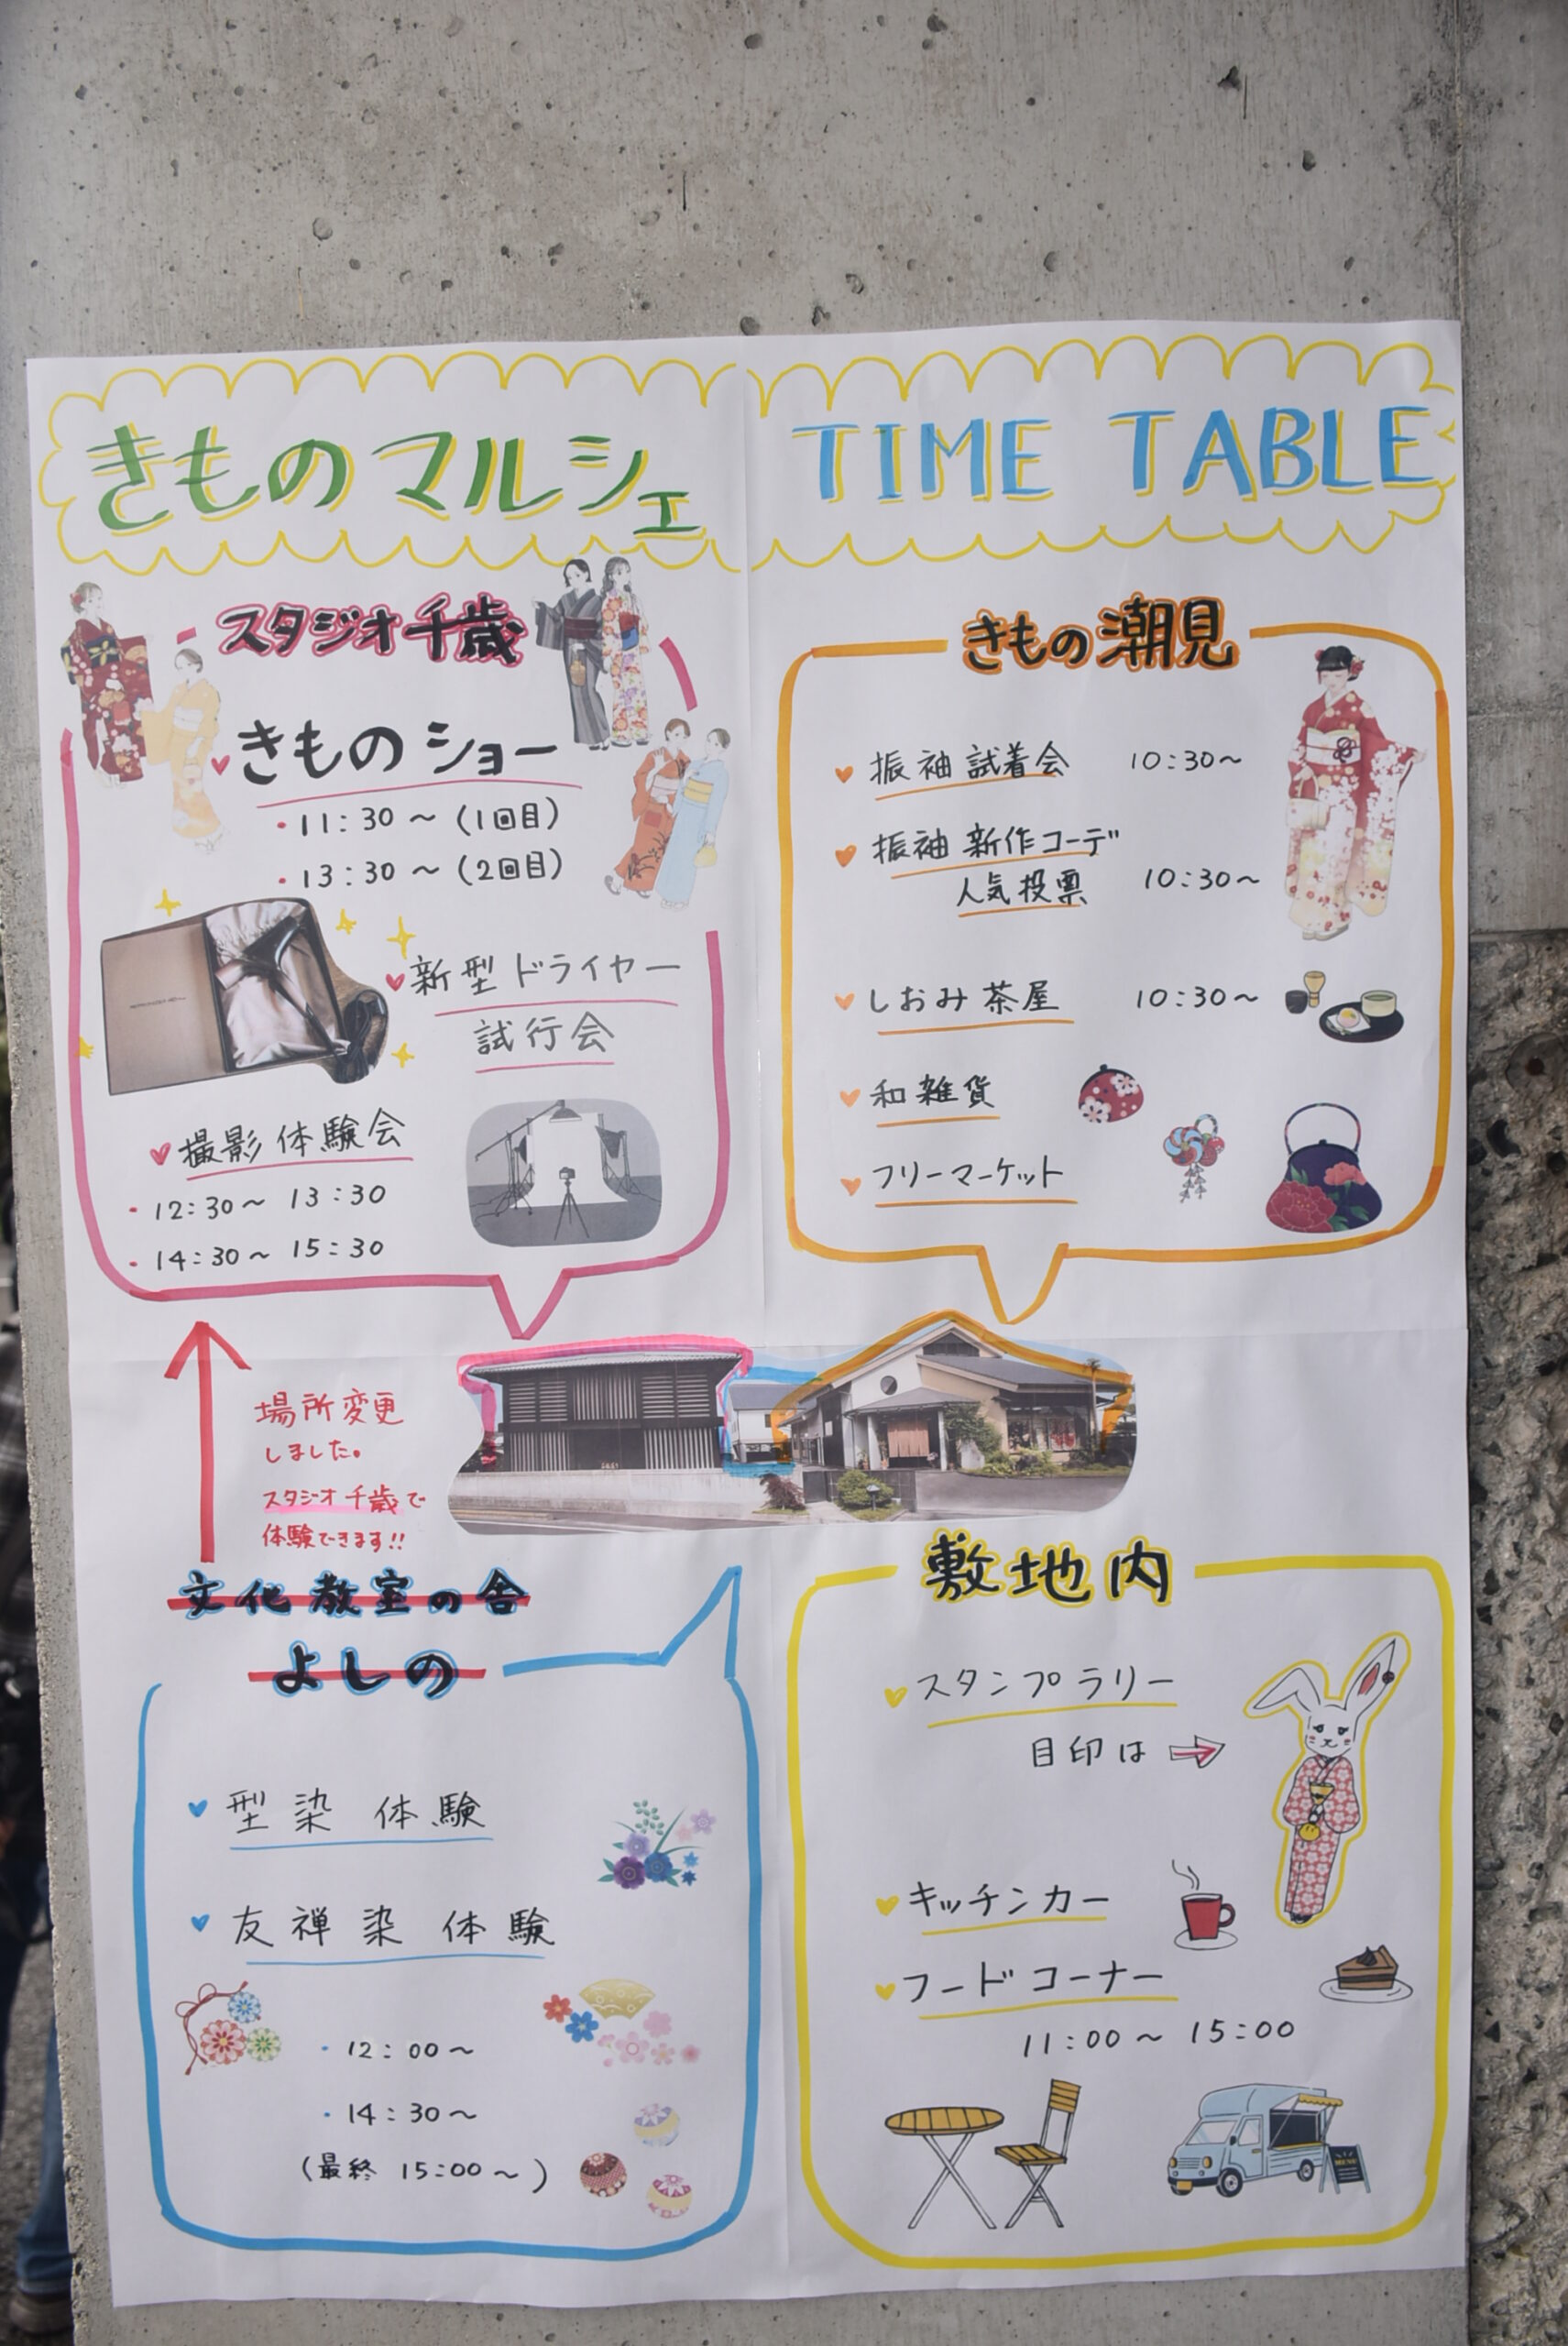 きものマルシェ TIME TABLE
スタジオ千歳
きものショー
・11:30～(1回目)
・13:30～(2回目)
新型ドライヤー
試行会
撮影体験会
・12:30～13:30
・14:30～15:30
きもの潮見
振袖試着会 10:30～
振袖新作コーデ
人気投票 10:30～
しおみ茶屋 10:30～
和雑貨
フリーマーケット
場所変更
しました。
スタジオ千歳で
体験できます!!
文化教室の舎
よしの
型染体験
友禅染体験
・12:00～
・14:30～
(最終 15:00～)
敷地内
スタンプラリー
目印は
キッチンカー
フードコーナー
11:00～15:00
MENU